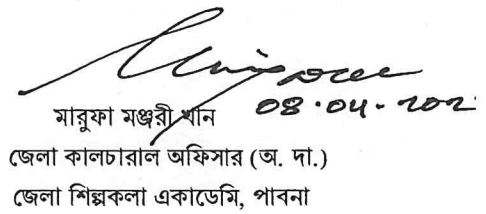 ০৪.০৮.২০২
মারুফা মঞ্জুরী খান
জেলা কালচারাল অফিসার (অ. দা.)
জেলা শিল্পকলা একাডেমি, পাবনা